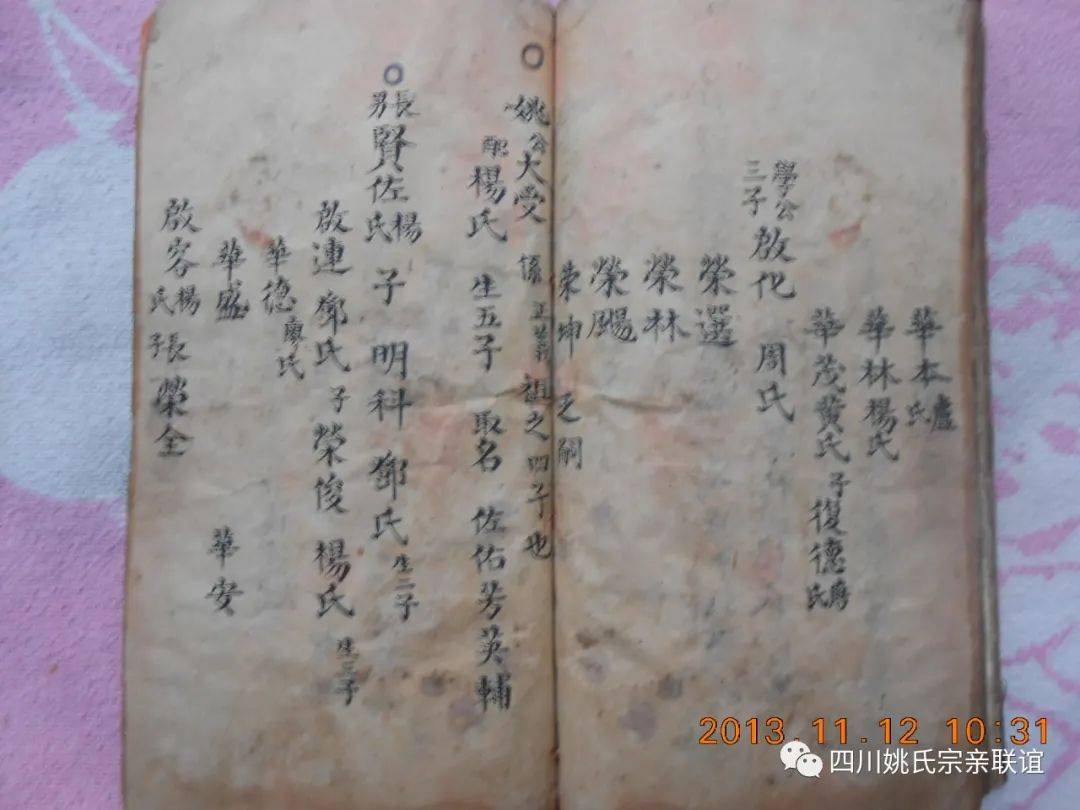 華本盧氏
華林楊氏
華茂黄氏 子復德廖氏
學公三子啟化 周氏
榮選
榮林
榮颺
榮坤 乏嗣
姚公大受 係正 祖之四子也
配楊氏 生五子 取名 佐佑芳英輔
長男賢佐楊氏 子 明科 鄧氏 生二子
啟連 鄧氏 子 榮俊 楊氏 生三子
華德廖氏
華盛
華安
啟容楊氏 子 張榮全
2013.11.12 10:31
四川姚氏宗亲联谊